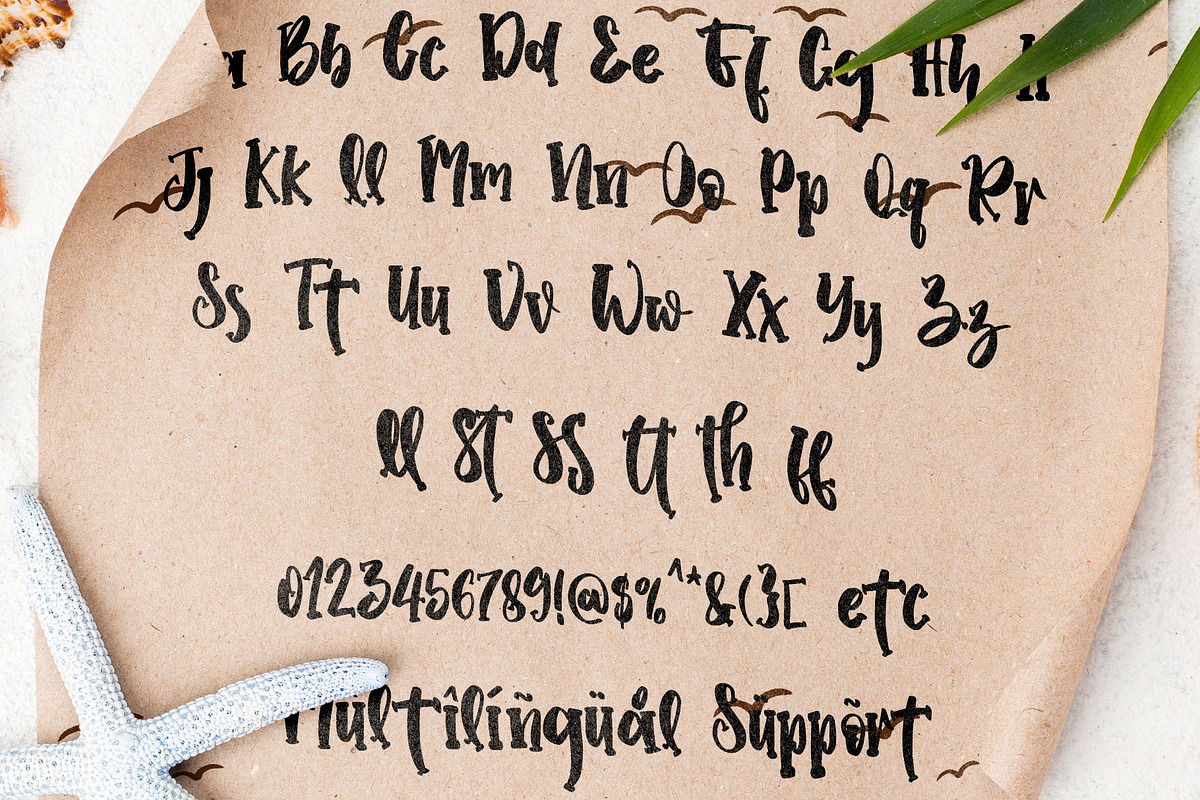 a Bb Cc Dd Ee Ff Gg Hh Ii
Jj Kk Ll Mm Nn Oo Pp Qq Rr
Ss Tt Uu Vv Ww Xx Yy Zz
ll st ss tt th ff
0123456789!@$%^*&(}[ etc
Multîlíñgüål Süppõrt